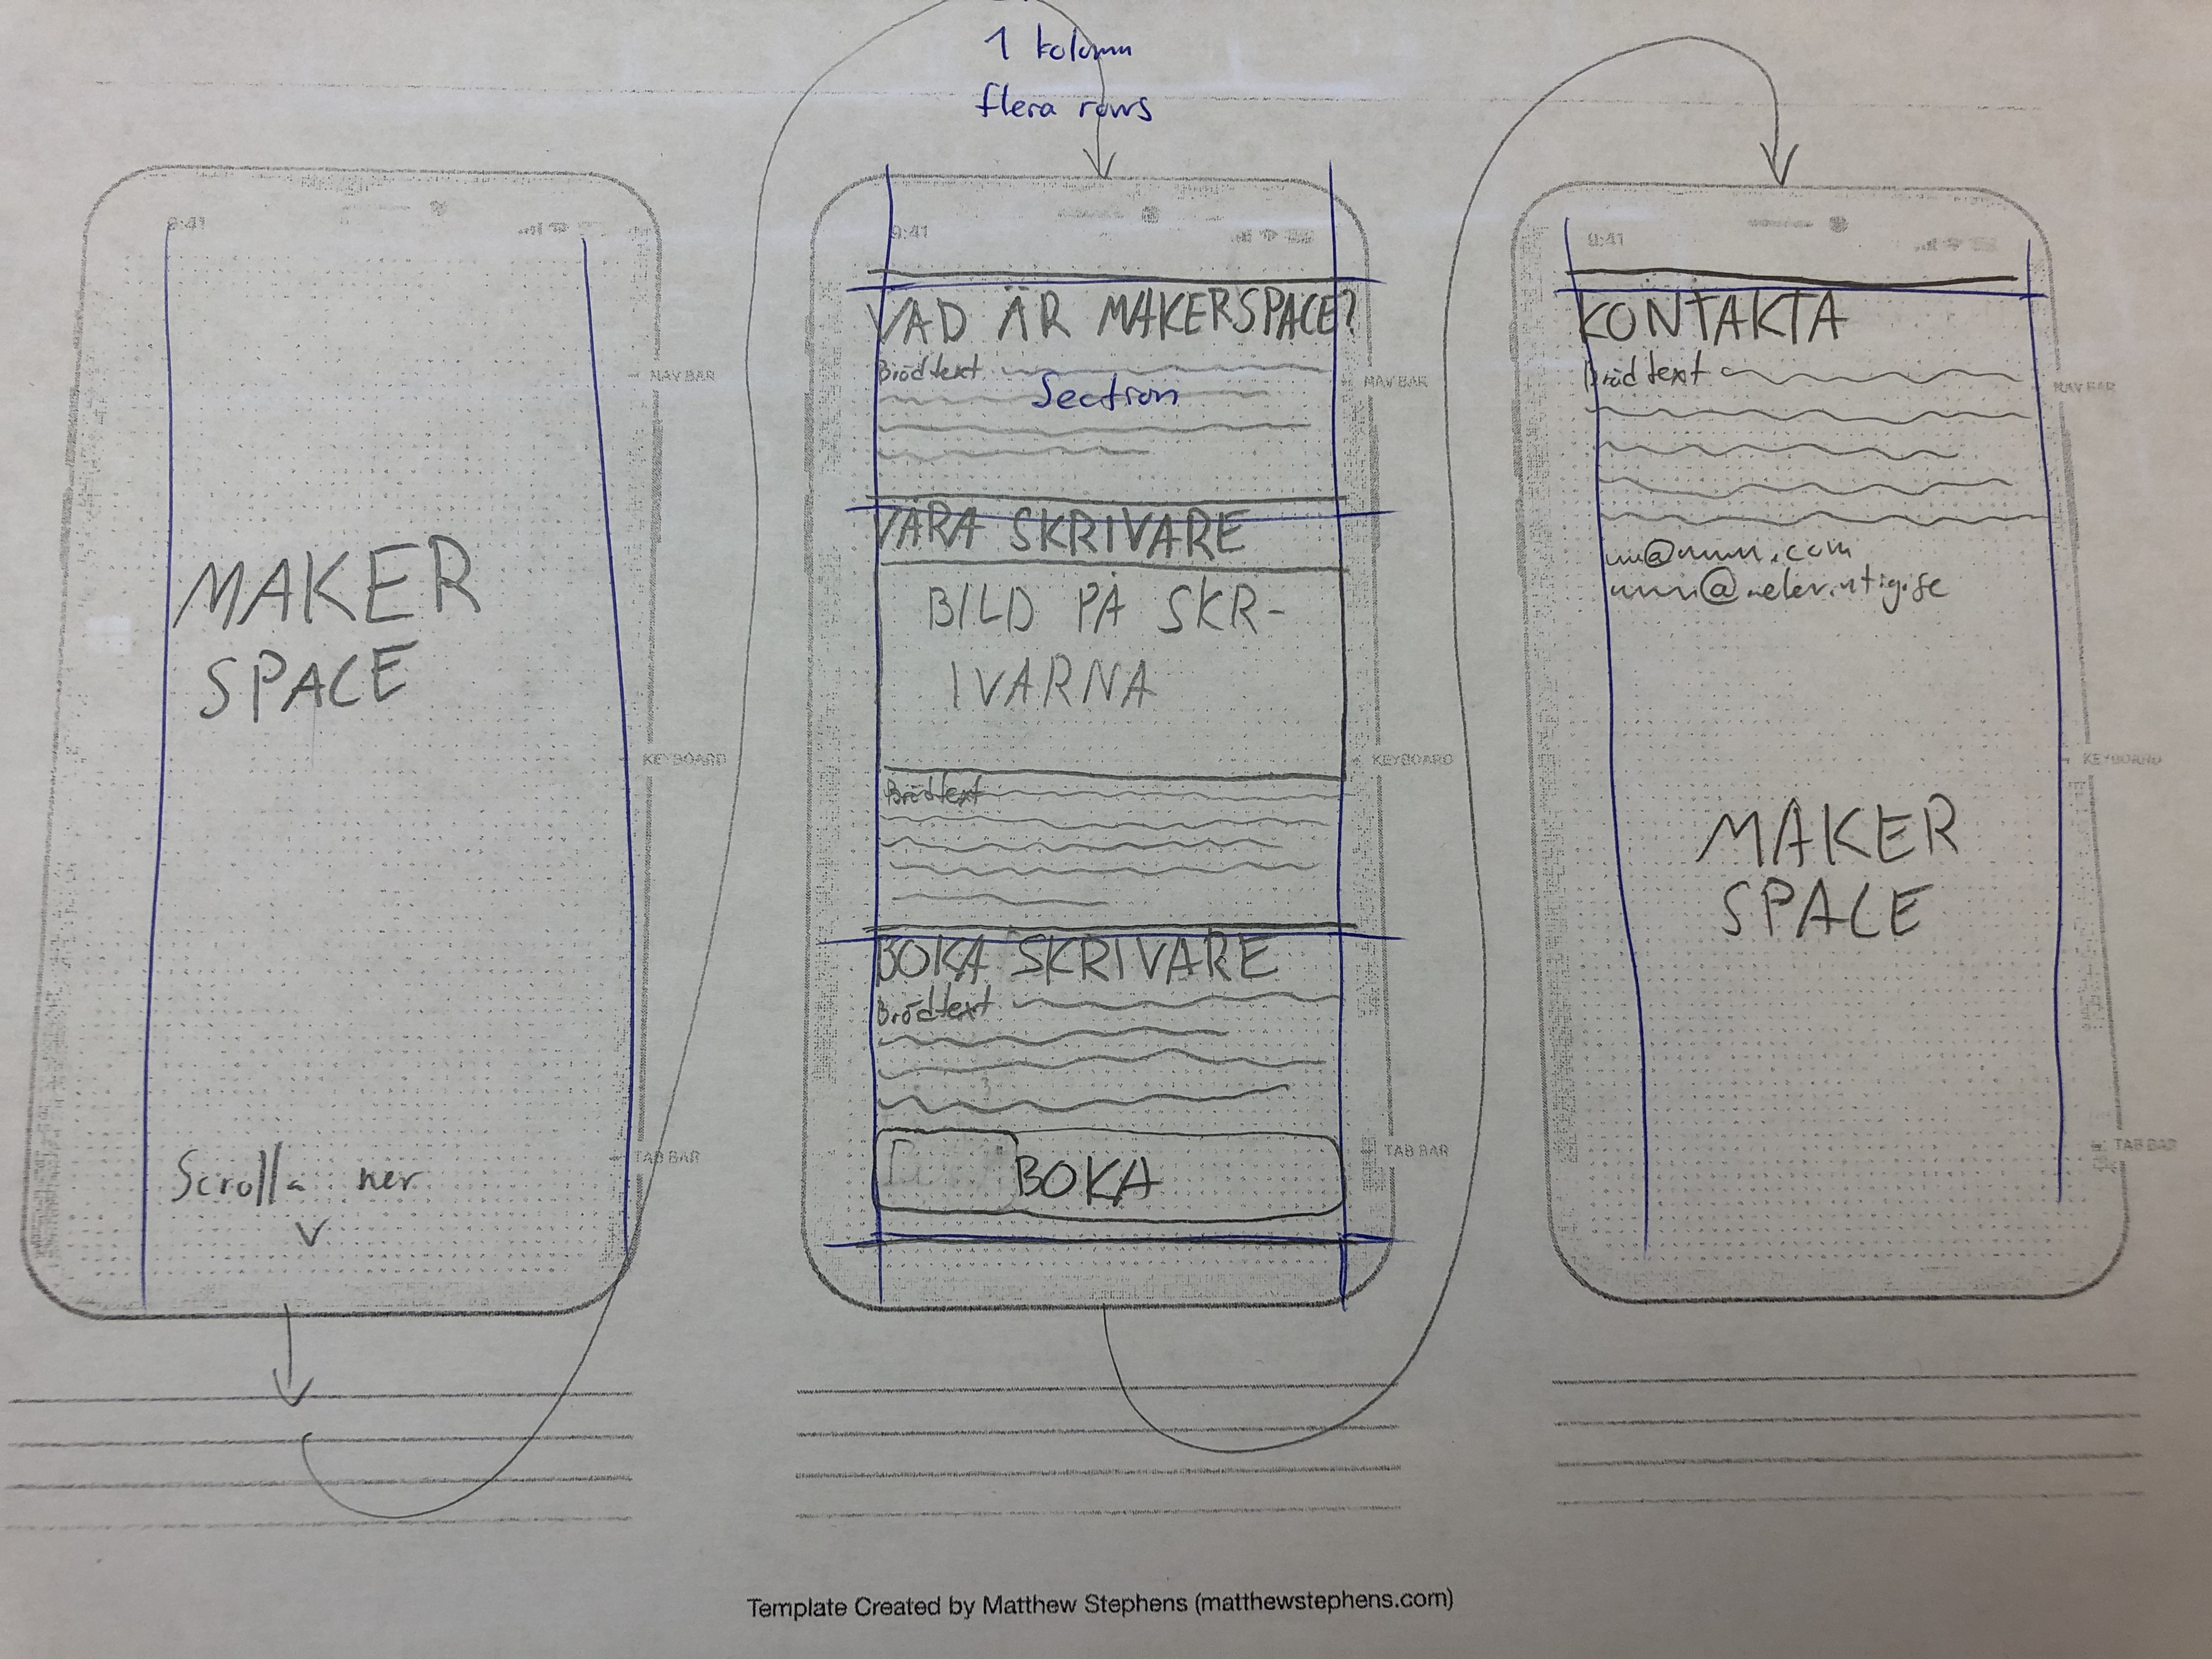 1 kolumn
flera rows
9:41
MAKER
SPACE
Scrolla ner
V
NAV BAR
KEYBOARD
TAB BAR
9:41
VAD ÄR MAKERSPACE?
Brödtext
Section
VÅRA SKRIVARE
BILD PÅ SKR-
IVARNA
Brödtext
BOKA SKRIVARE
Brödtext
BOKA
NAV BAR
KEYBOARD
TAB BAR
9:41
KONTAKTA
Brödtext
MAKER
SPACE
NAV BAR
KEYBOARD
TAB BAR
Template Created by Matthew Stephens (matthewstephens.com)